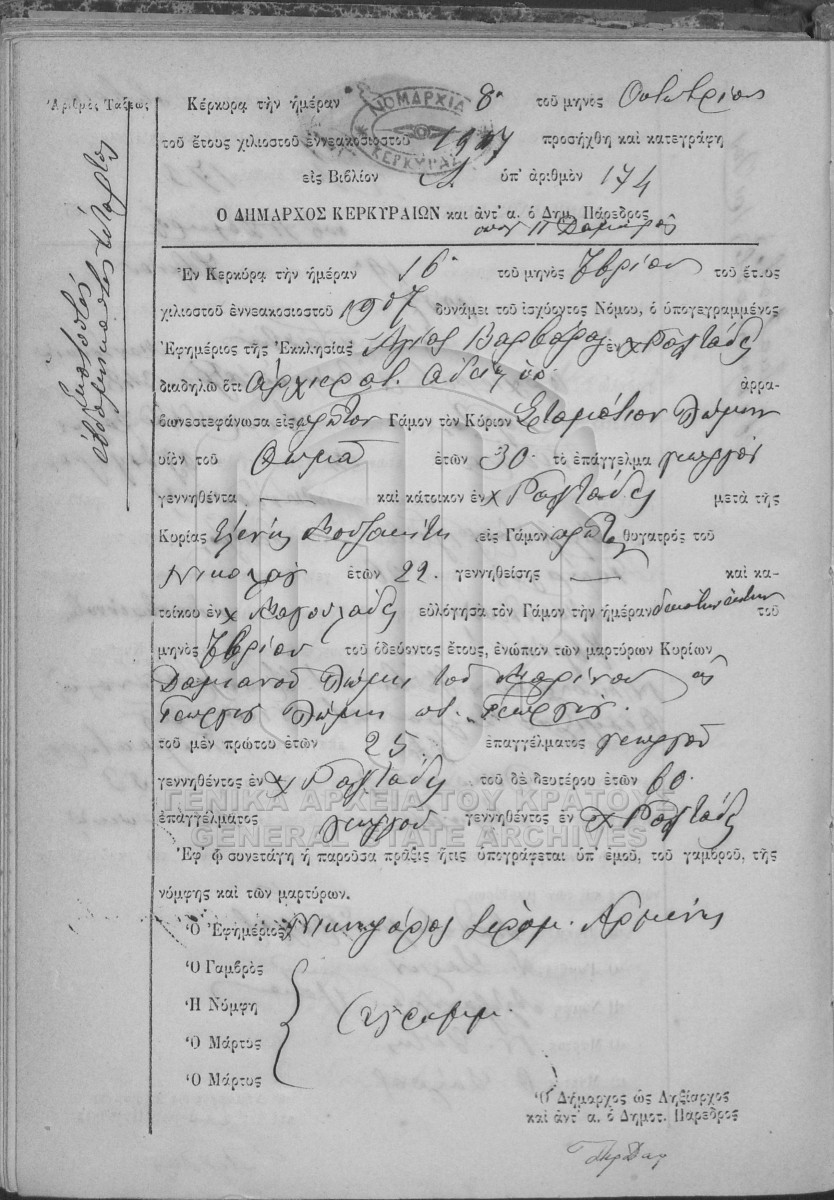 Ἀριθμὸς Τάξεως
ἑκατοστὸς
ἑβδομηκοστὸς τέταρτος
Κέρκυρα τὴν ἡμέραν 8η τοῦ μηνὸς Ὀκτωβρίου
ΝΟΜΑΡΧΙΑ ΚΕΡΚΥΡΑΣ
τοῦ ἔτους χιλιοστοῦ ἐννεακοσιοστοῦ 1907 προσήχθη καὶ κατεγράφη
εἰς Βιβλίον ὑπ' ἀριθμὸν 174
Ὁ ΔΗΜΑΡΧΟΣ ΚΕΡΚΥΡΑΙΩΝ καὶ ἀντ' α. ὁ Δημ. Πάρεδρος
Ἐν Κερκύρᾳ τὴν ἡμέραν 16η τοῦ μηνὸς 7βρίου τοῦ ἔτους
χιλιοστοῦ ἐννεακοσιοστοῦ 1907 δυνάμει τοῦ ἰσχύοντος Νόμου, ὁ ὑπογεγραμμένος
Ἐφημέριος τῆς Ἐκκλησίας Ἁγίας Βαρβάρας ἐν χ
διαδηλῶ ὅτι ἀρχιερατ. ἀδείᾳ ἀρρα-
βωνεστεφάνωσα εἰς πρῶτον Γάμον τὸν Κύριον Σταμάτιον
υἱὸν τοῦ Θωμᾶ ἐτῶν 30 τὸ ἐπάγγελμα γεωργὸν
γεννηθέντα — καὶ κάτοικον ἐν χ μετὰ τῆς
Κυρίας Ἑλένης εἰς Γάμον πρῶτον θυγατρὸς τοῦ
Νικολάου ἐτῶν 22 γεννηθείσης — καὶ κα-
τοίκου ἐν χ εὐλόγησα τὸν Γάμον τὴν ἡμέραν δεκάτην ἕκτην τοῦ
μηνὸς 7βρίου τοῦ ὁδεύοντος ἔτους, ἐνώπιον τῶν μαρτύρων Κυρίων
Δαμιανοῦ τοῦ Μαρίνου
Γεωργίου Γεωργίου
τοῦ μὲν πρώτου ἐτῶν 25 ἐπαγγέλματος γεωργοῦ
γεννηθέντος ἐν χ τοῦ δὲ δευτέρου ἐτῶν 60
ΓΕΝΙΚΑ ΑΡΧΕΙΑ ΤΟΥ ΚΡΑΤΟΥΣ
ἐπαγγέλματος γεωργοῦ γεννηθέντος ἐν χ
GENERAL STATE ARCHIVES
Ἐφ' ᾧ συνετάγη ἡ παροῦσα πρᾶξις ἥτις ὑπογράφεται ὑπ' ἐμοῦ, τοῦ γαμβροῦ, τῆς
νύμφης καὶ τῶν μαρτύρων.
Ὁ Ἐφημέριος Νικηφόρος Ἱερομ.
Ὁ Γαμβρὸς
Ἡ Νύμφη
ἀγράμμ.
Ὁ Μάρτυς
Ὁ Μάρτυς
Ὁ Δήμαρχος ὡς Ληξίαρχος
καὶ ἀντ' α. ὁ Δημοτ. Πάρεδρος